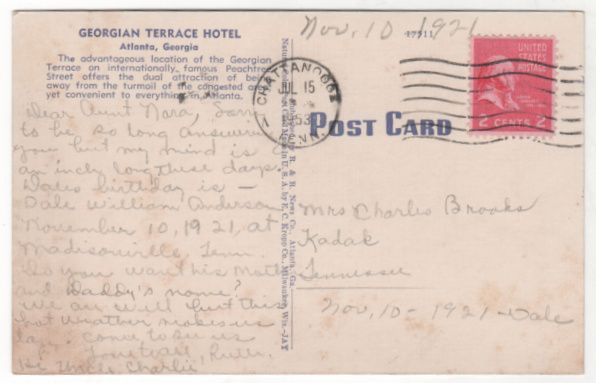 GEORGIAN TERRACE HOTEL
Atlanta, Georgia
The advantageous location of the Georgian
Terrace on internationally famous Peachtree
Street offers the dual attraction of being
away from the turmoil of the congested area
yet convenient to everything in Atlanta.
Dear Aunt Nora, Sorry
to be so long answering
you but my mind is
an inch long these days.
Dales birthday is —
Dale William Anderson
November 10, 1921, at
Madisonville, Tenn.
Do you want his Mother
and Daddy's name?
We are well but this
hot weather makes us
lazy. Come to see us
Love to all, Ruth.
Hi Uncle Charlie
Nov. 10 1921
17911
CHATTANOOGA
JUL 15
1953
TENN.
POST CARD
UNITED
STATES
POSTAGE
2 CENTS 2
Mrs Charles Brooks
Kodak
Tennessee
Nov. 10 - 1921 - Dale
R. & R. News Co., Atlanta, Ga.
U. S. A. by E. C. Kropp Co., Milwaukee, Wis.-JAY